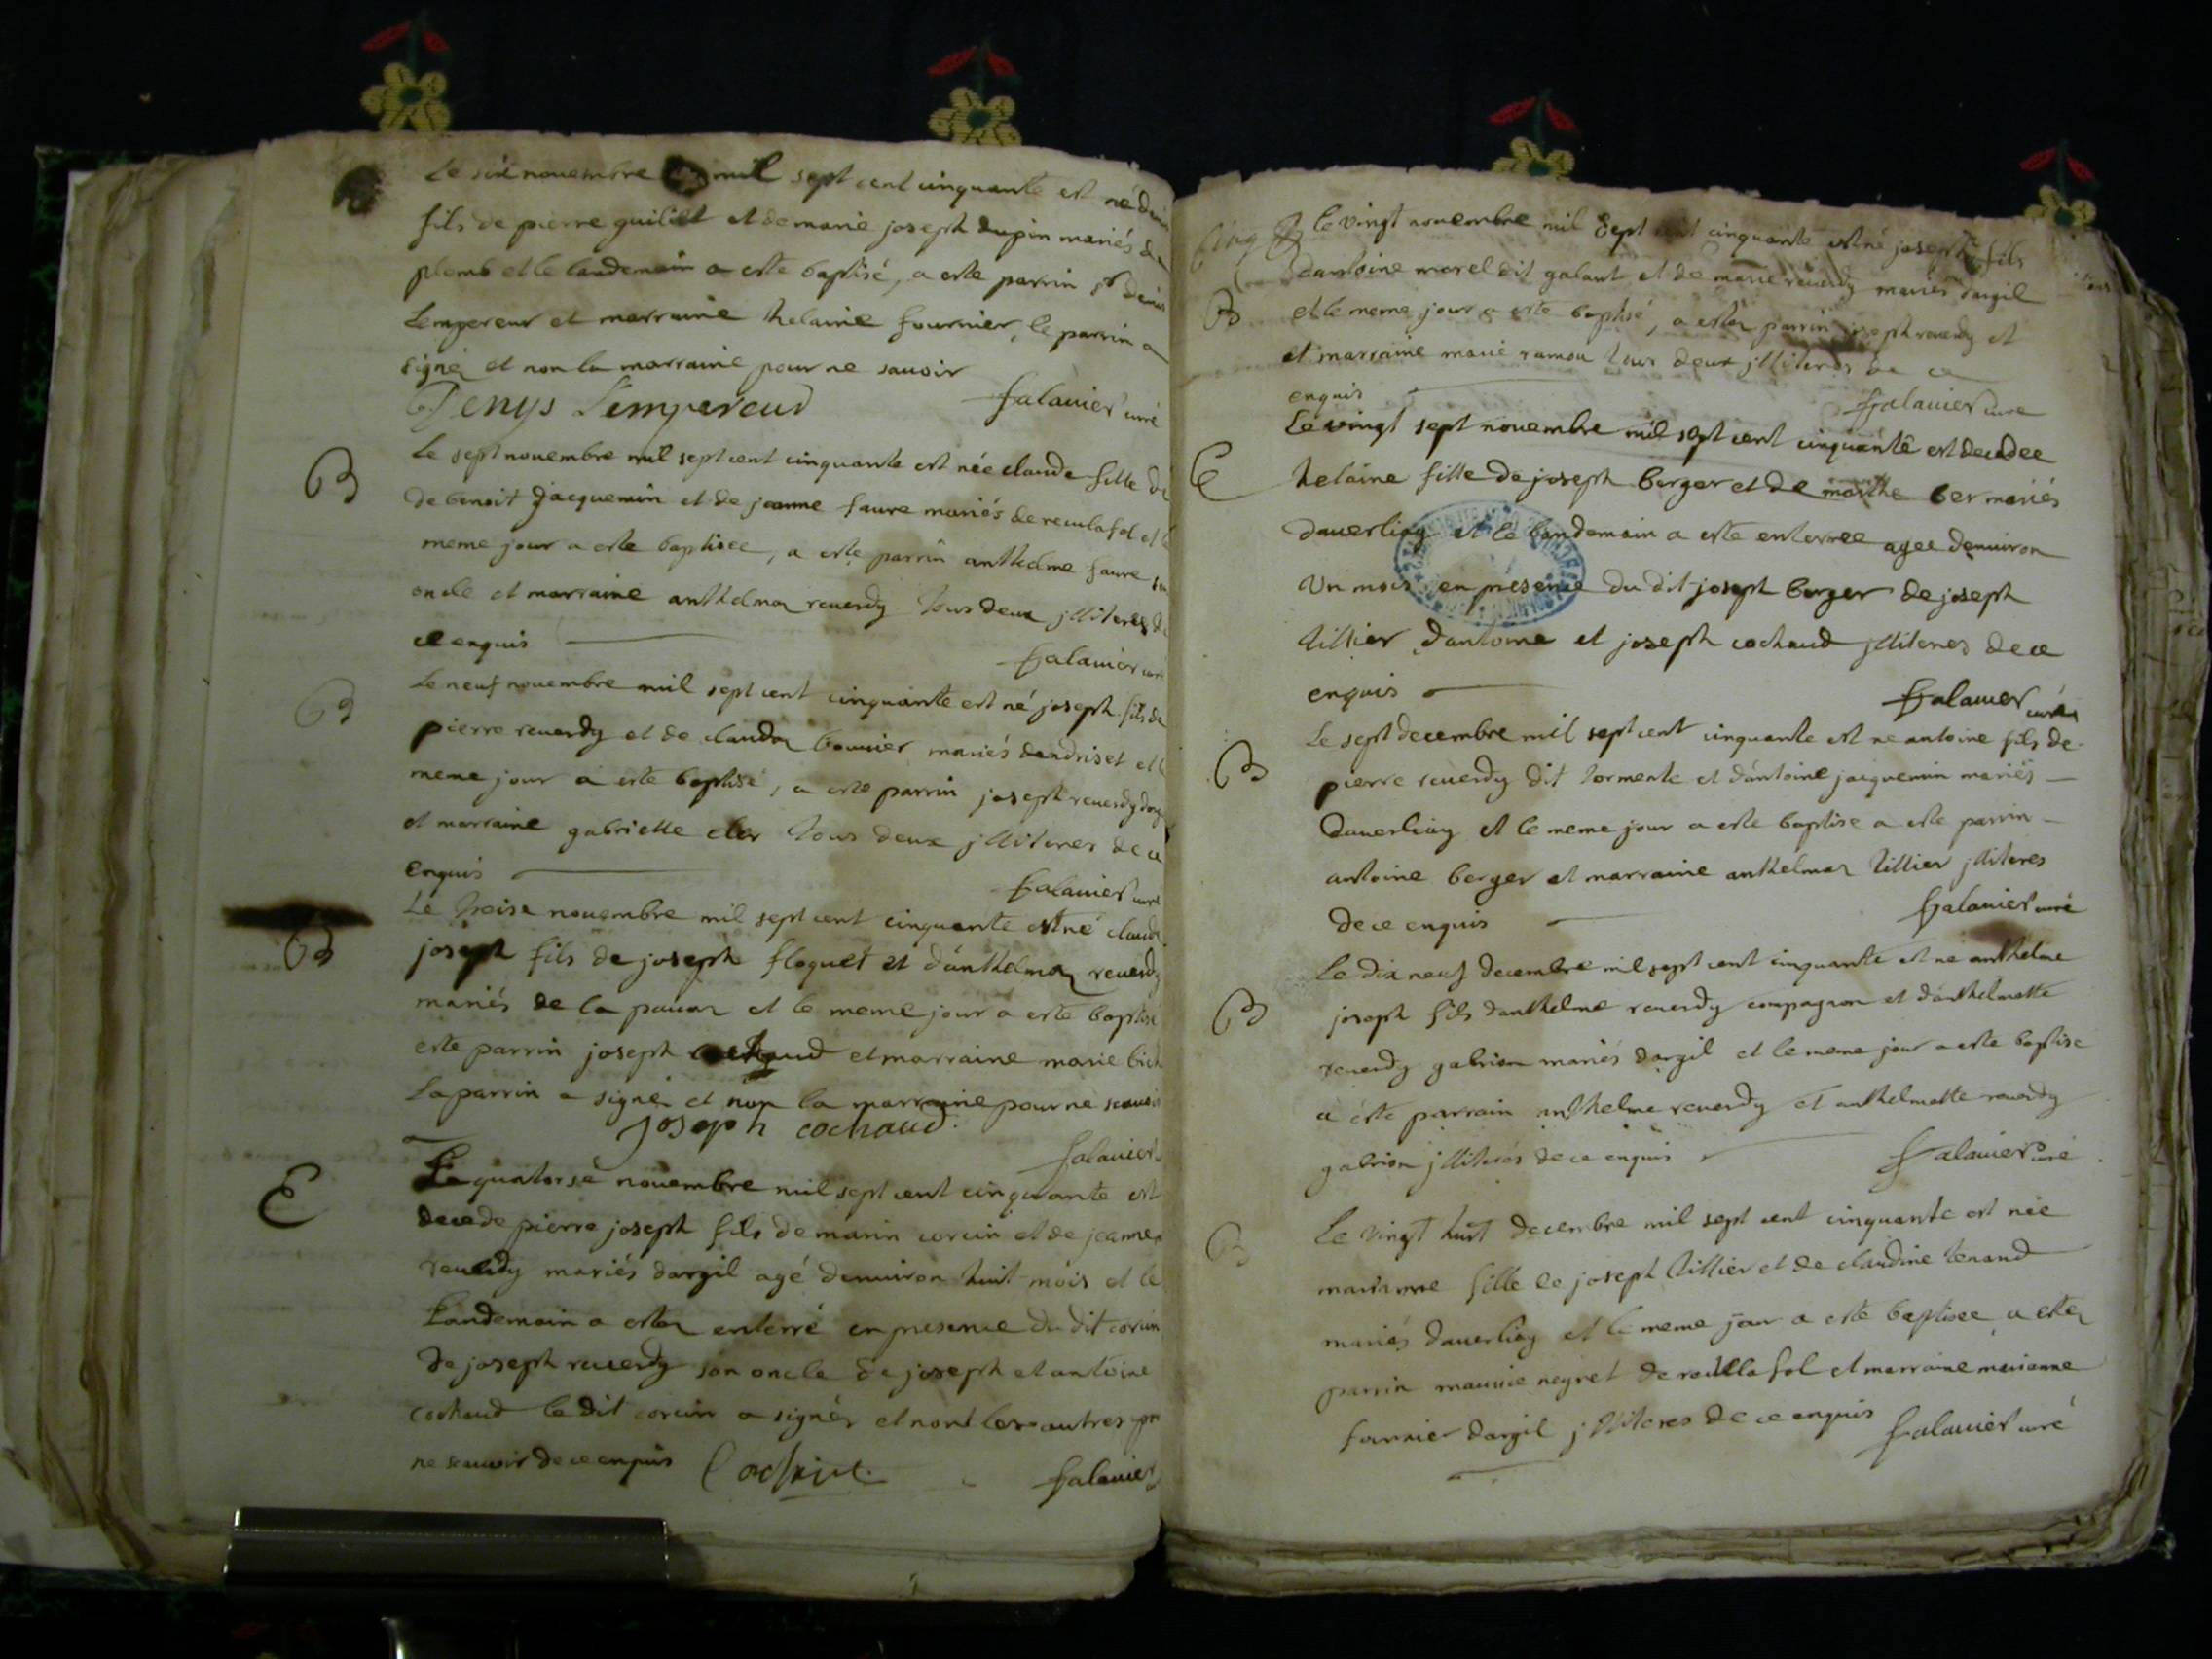 Le six novembre mil sept cent cinquante est né denis
fils de pierre guillet et de marie joseph dupin mariés de
plomb et le landemain a esté baptisé, a esté parrin sr denis
Lempereur et marraine helaine fournier, le parrin a
signé et non la marraine pour ne sauoir
Denys Lempereud falauier curé
B
Le sept nouembre mil sept cent cinquante est née claude fille de
de benoit jacquemin et de jeanne faure mariés de reculafol et le
meme jour a esté baptisee, a esté parrin anthelme faure son
oncle et marraine anthelma reuerdy tous deux jlliteres de
ce enquis falauier curé
B
Le neuf nouembre mil sept cent cinquante est né joseph fils de
pierre reuerdy et de clauda bouuier mariés dandriset et le
meme jour a esté baptisé, a esté parrin joseph reuerdy
et marraine gabrielle cler tous deux jlliteres de ce
enquis falauier curé
B
Le treise nouembre mil sept cent cinquante est né claude
joseph fils de joseph floquet et d'anthelma reuerdy
mariés de la and et le meme jour a esté baptisé
esté parrin joseph cochaud et marraine marie
La parrin a signé et non la marraine pour ne scauoir
Joseph cochaud.
falauier
E
Le quatorse nouembre mil sept cent cinquante est
decede pierre joseph fils de marin corcin et de jeanne
reuerdy mariés dargil agé denuiron huit mois et le
Landemain a esté enterré en presence du dit corcin
de joseph reuerdy son oncle de joseph et antoine
cochaud le dit corcin a signés et nont les autres pr
ne scauoir de ce enquis falauier
B
le vingt nouembre mil sept cent cinquante est né joseph fils
dantoine morel dit galant et de marie reuerdy mariés dargil
et le meme jour a esté baptisé, a esté parrin joseph reuerdy et
et marraine marie ramou tous deux jlliteres de ce
enquis falauier curé
E
Le vingt sept nouembre mil sept cent cinquante est decedee
helaine fille de joseph berger et de marthe ber mariés
dauerliay et le landemain a esté enterrée agee denuiron
un mois en presence du dit joseph berger de joseph
tillier dantoine et joseph cochaud jlliteres de ce
enquis falauier curé
B
Le sept decembre mil sept cent cinquante est ne antoine fils de
pierre reuerdy dit tormente et d'antoine jacquemin mariés
dauerliay et le meme jour a esté baptise a esté parrin
antoine berger et marraine anthelma tillier jlliteres
de ce enquis falauier curé
B
Le dix neuf decembre mil sept cent cinquante est ne anthelme
joseph fils danthelme reuerdy compagnon et danthelmette
reuerdy gabrion mariés dargil et le meme jour a esté baptise
a éste parrain anthelme reuerdy et anthelmette reuerdy
gabrion jlliteres de ce enquis falauier curé
B
Le vingt huit decembre mil sept cent cinquante est née
marianne fille de joseph tillier et de claudine tenand
mariés dauerliay et le meme jour a esté baptisee a esté
parrin maurice neyret de fol et marraine marianne
fournier dargil jlliteres de ce enquis falauier curé